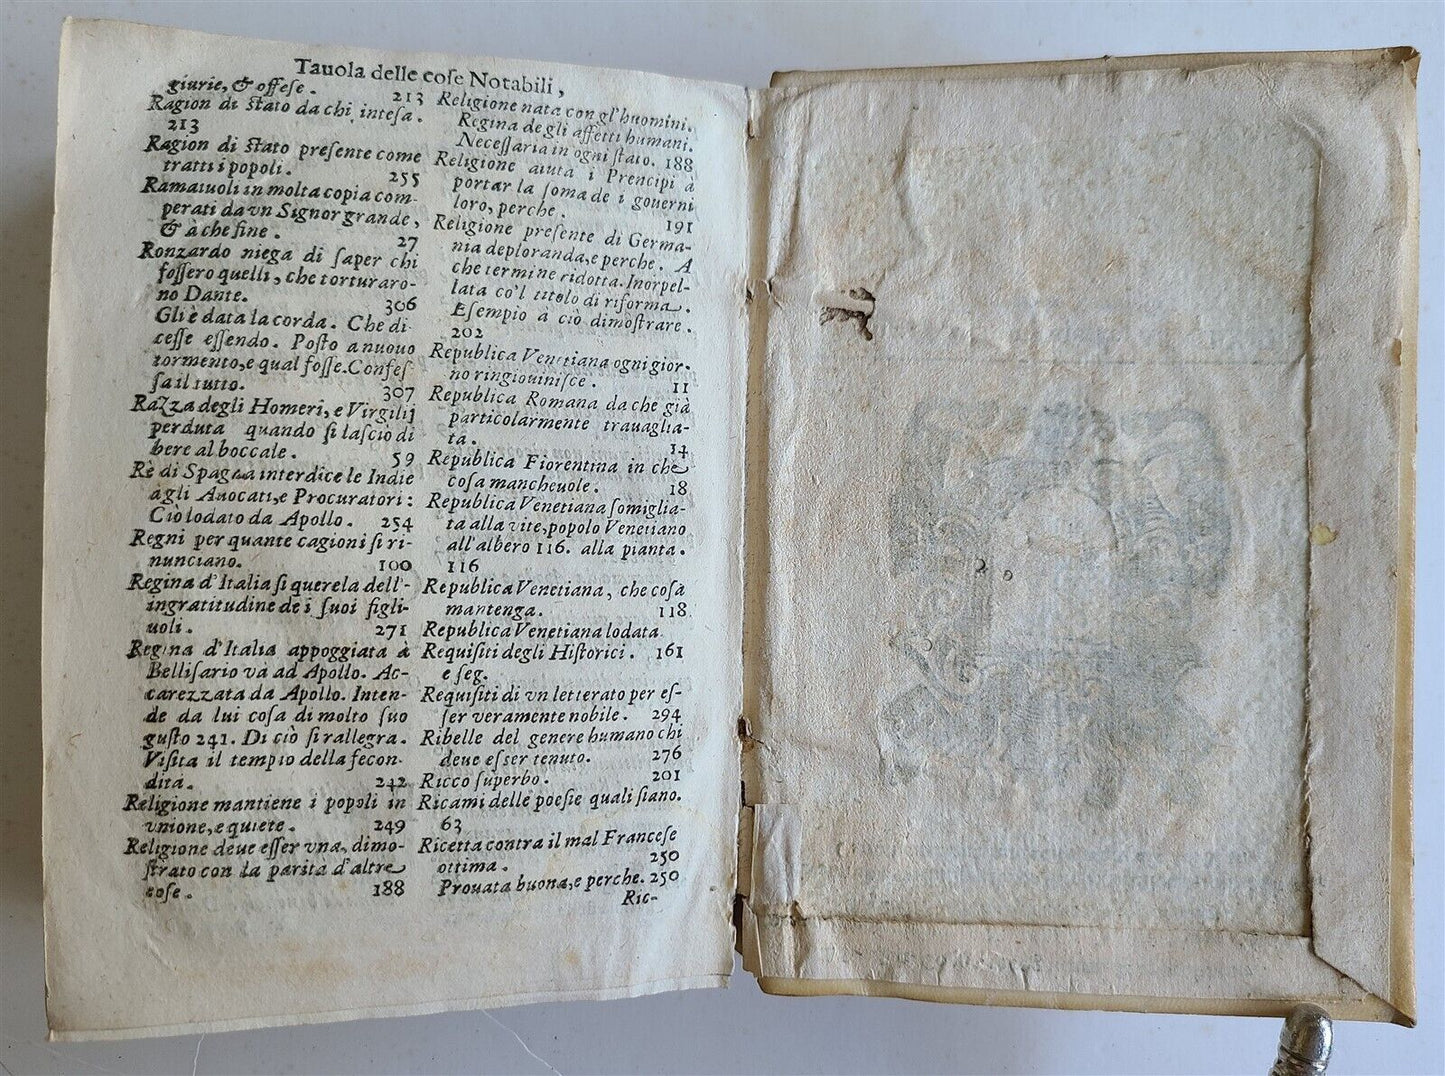 Tauola delle cose Notabili,
giurie, & offese. 213
Ragion di stato da chi intesa.
213
Ragion di stato presente come
tratti i popoli. 255
Ramaiuoli in molta copia com-
perati da vn Signor grande,
& à che fine. 27
Ronzardo niega di saper chi
fossero quelli, che torturaro-
no Dante. 306
Gli è data la corda. Che di-
cesse essendo. Posto a nuouo
tormento, e qual fosse. Confes
sa il tutto. 307
Razza degli Homeri, e Virgilij
perduta quando si lasciò di
bere al boccale. 59
Rè di Spagna interdice le Indie
agli Auocati, e Procuratori:
Ciò lodato da Apollo. 254
Regni per quante cagioni si ri-
nunciano. 100
Regina d'Italia si querela dell'-
ingratitudine de i suoi figli-
uoli. 271
Regina d'Italia appoggiata à
Bellisario và ad Apollo. Ac-
carezzata da Apollo. Inten-
de da lui cosa di molto suo
gusto 241. Di ciò si rallegra.
Visita il tempio della fecon-
dita. 242
Religione mantiene i popoli in
vnione, e quiete. 249
Religione deue esser vna, dimo-
strato con la parita d'altre
cose. 188
Religione nata con gl'huomini.
Regina degli affetti humani.
Necessaria in ogni stato. 188
Religione aiuta i Prencipi à
portar la soma de i gouerni
loro, perche. 191
Religione presente di Germa-
nia deploranda, e perche. A
che termine ridotta. Inorpel-
lata co'l titolo di riforma.
Esempio à ciò dimostrare.
202
Republica Venetiana ogni gior-
no ringiouinisce. 11
Republica Romana da che già
particolarmente trauaglia-
ta. 14
Republica Fiorentina in che
cosa mancheuole. 18
Republica Venetiana somiglia-
ta alla vite, popolo Venetiano
all'albero 116. alla pianta.
116
Republica Venetiana, che cosa
mantenga. 118
Republica Venetiana lodata
Requisiti degli Historici. 161
e seg.
Requisiti di vn letterato per es-
ser veramente nobile. 294
Ribelle del genere humano chi
deue esser tenuto. 276
Ricco superbo. 201
Ricami delle poesie quali siano.
63
Ricetta contra il mal Francese
ottima. 250
Prouata buona, e perche. 250
Ric-